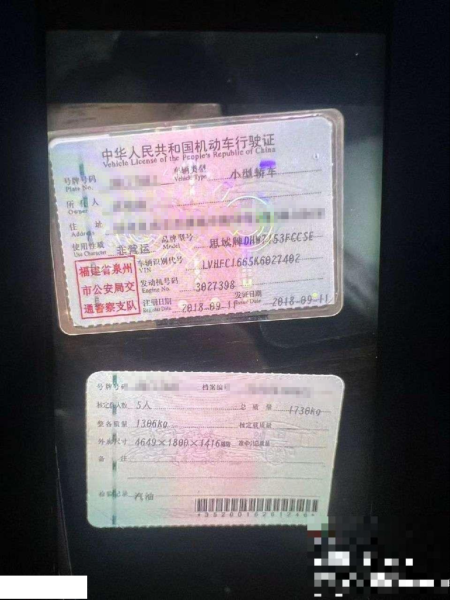 中华人民共和国机动车行驶证
Vehicle License of the People's Republic of China
号牌号码 车辆类型 小型轿车
Plate No. Vehicle Type
所有人
Owner
住址
Address
使用性质 非营运 品牌型号 思域牌DHW7153FCCSE
Use Character Model
福建省泉州
市公安局交
通警察支队
车辆识别代号 LVHFC1665K6027402
VIN
发动机号码 3027398
Engine No.
注册日期 2018-09-11 发证日期 2018-09-11
Register Date Issue Date
号牌号码 档案编号
核定载人数 5人 总质量 1730kg
整备质量 1306kg 核定载质量
外廓尺寸 4649×1800×1416
备注
检验记录 汽油